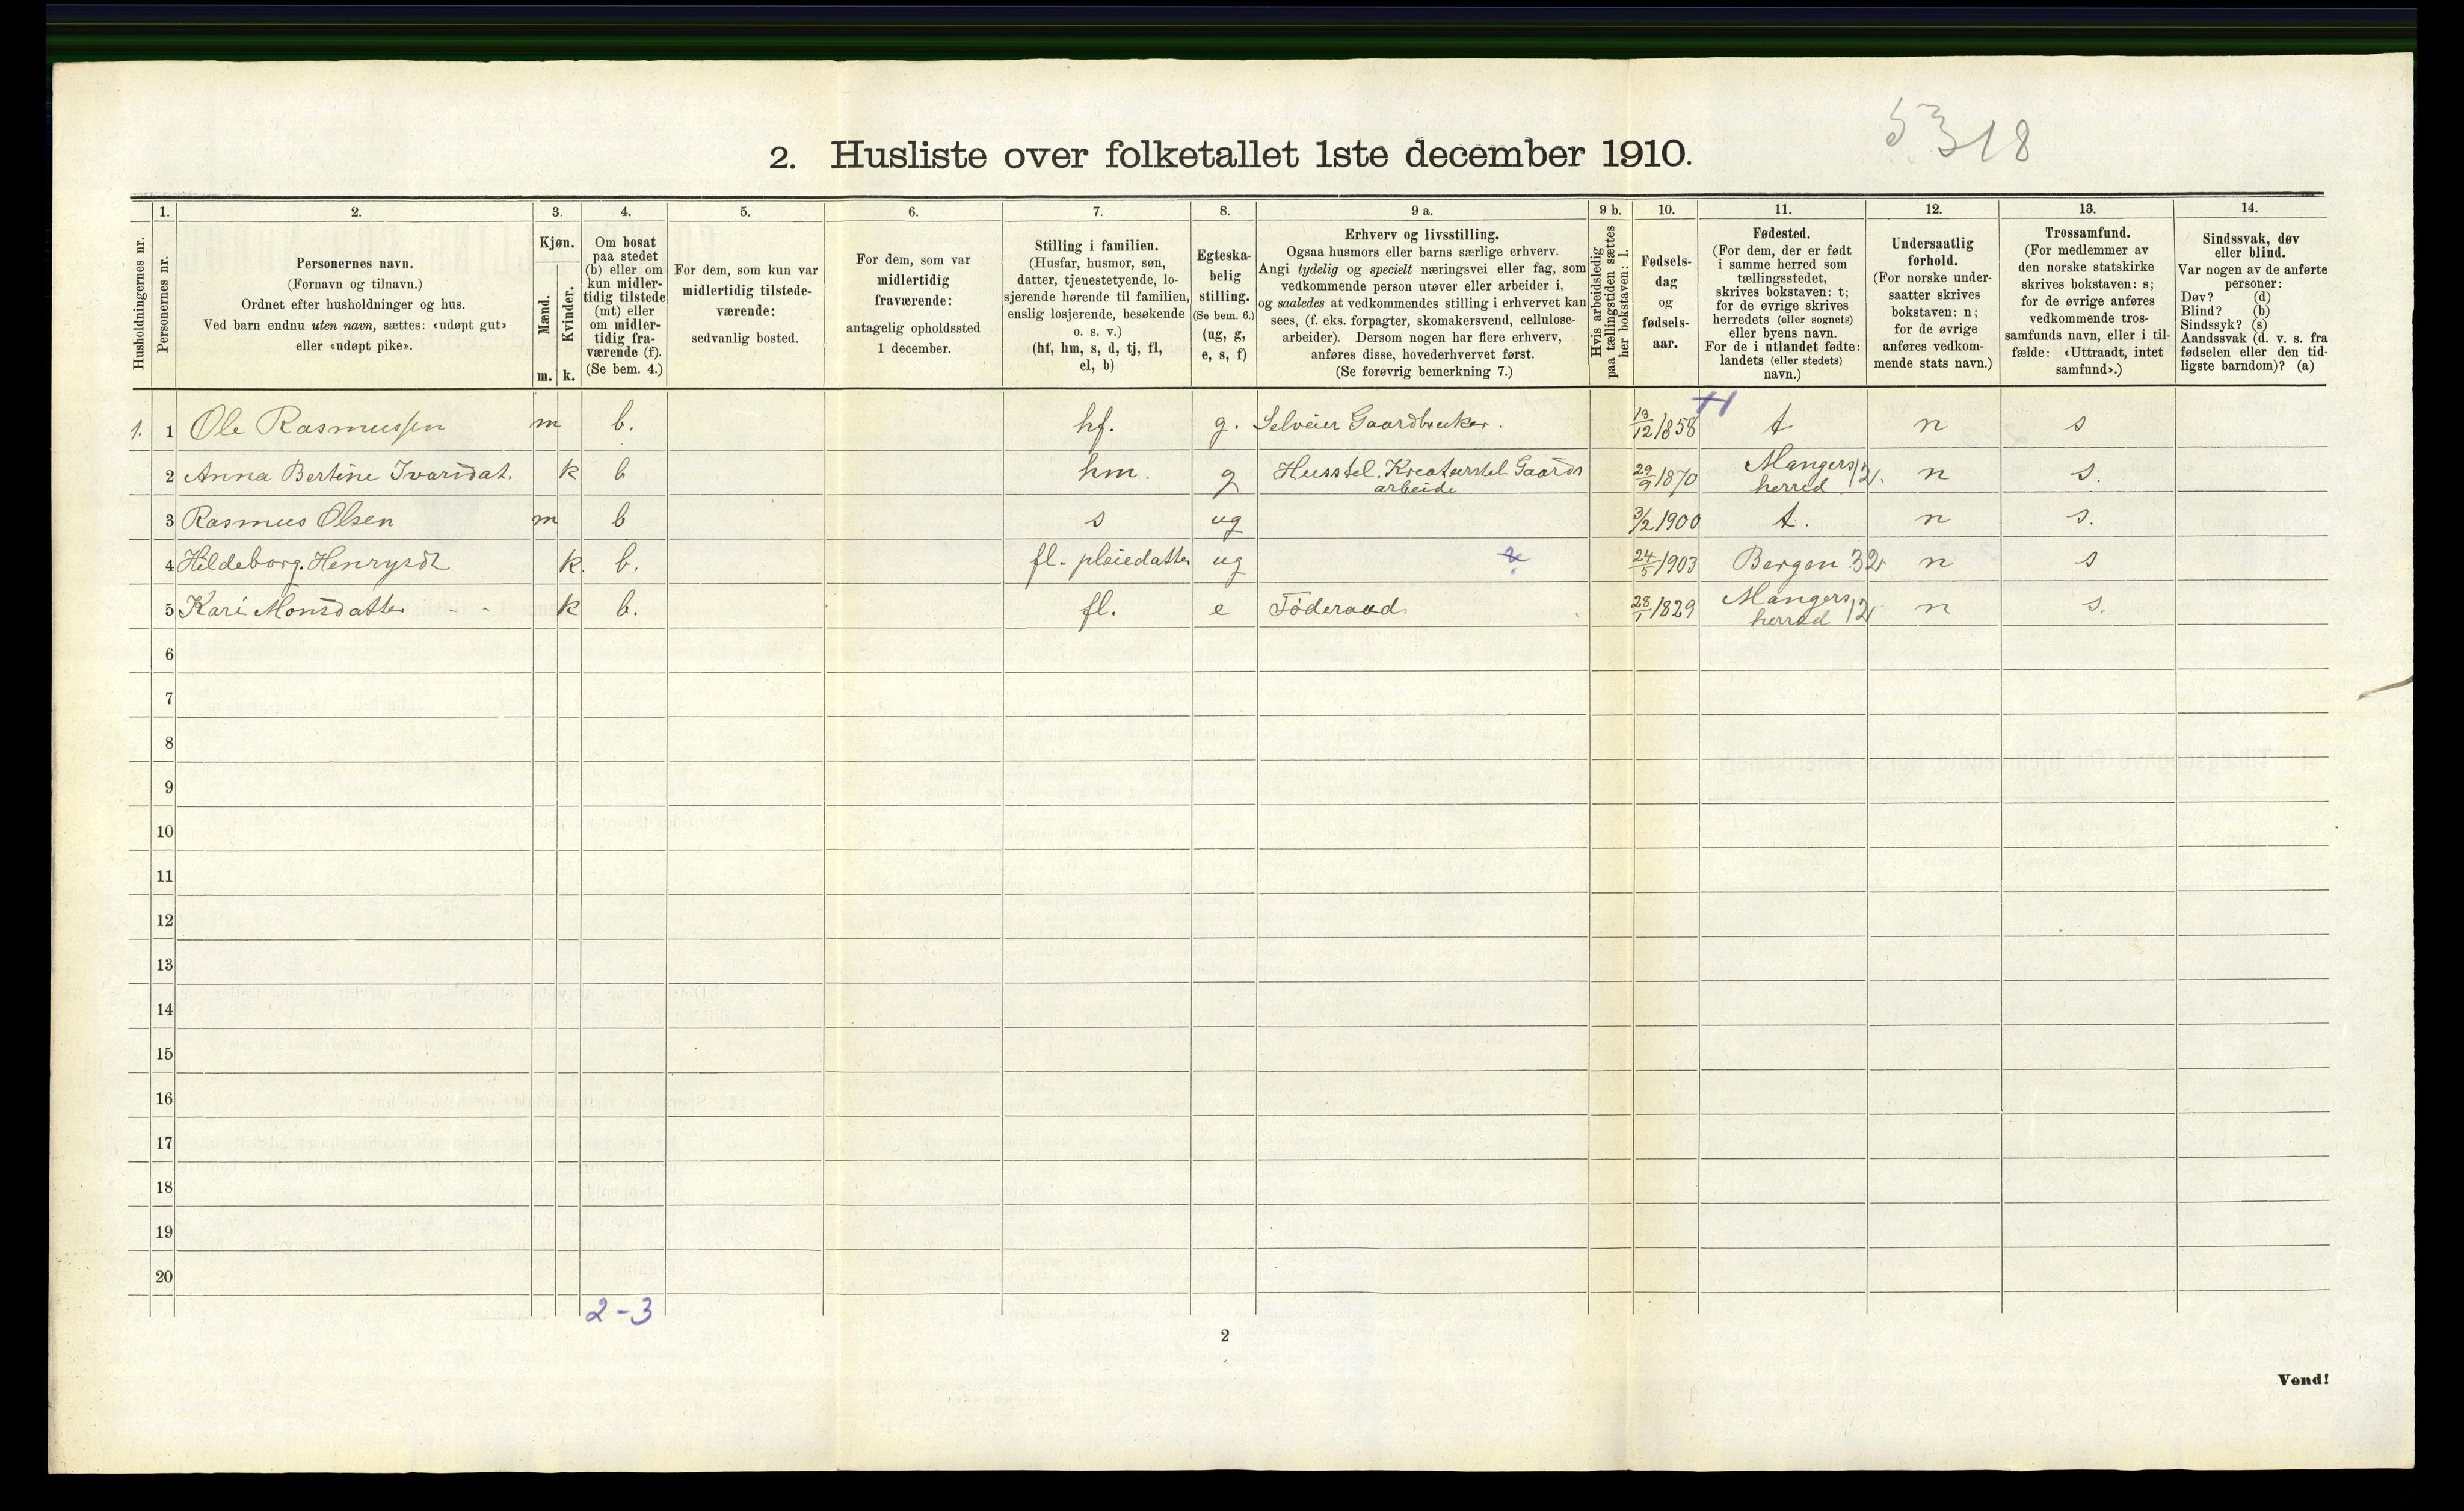 5318
2. Husliste over folketallet 1ste december 1910.
Husholdningernes nr.
1. Personernes nr.
2. Personernes navn.
(Fornavn og tilnavn.)
Ordnet efter husholdninger og hus.
Ved barn endnu uten navn, sættes: «udøpt gut»
eller «udøpt pike».
3. Kjøn.
Mænd. m.
Kvinder. k.
4. Om bosat
paa stedet
(b) eller om
kun midler-
tidig tilstede
(mt) eller
om midler-
tidig fra-
værende (f).
(Se bem. 4.)
5. For dem, som kun var
midlertidig tilstede-
værende:
sedvanlig bosted.
6. For dem, som var
midlertidig
fraværende:
antagelig opholdssted
1 december.
7. Stilling i familien.
(Husfar, husmor, søn,
datter, tjenestetyende, lo-
sjerende hørende til familien,
enslig losjerende, besøkende
o. s. v.)
(hf, hm, s, d, tj, fl,
el, b)
8. Egteska-
belig
stilling.
(Se bem. 6.)
(ug, g,
e, s, f)
9 a. Erhverv og livsstilling.
Ogsaa husmors eller barns særlige erhverv.
Angi tydelig og specielt næringsvei eller fag, som
vedkommende person utøver eller arbeider i,
og saaledes at vedkommendes stilling i erhvervet kan
sees, (f. eks. forpagter, skomakersvend, cellulose-
arbeider). Dersom nogen har flere erhverv,
anføres disse, hovederhvervet først.
(Se forøvrig bemerkning 7.)
9 b. Hvis arbeidsledig
paa tællingstiden sættes
her bokstaven: l.
10. Fødsels-
dag
og
fødsels-
aar.
11. Fødested.
(For dem, der er født
i samme herred som
tællingsstedet,
skrives bokstaven: t;
for de øvrige skrives
herredets (eller sognets)
eller byens navn.
For de i utlandet fødte:
landets (eller stedets)
navn.)
12. Undersaatlig
forhold.
(For norske under-
saatter skrives
bokstaven: n;
for de øvrige
anføres vedkom-
mende stats navn.)
13. Trossamfund.
(For medlemmer av
den norske statskirke
skrives bokstaven: s;
for de øvrige anføres
vedkommende tros-
samfunds navn, eller i til-
fælde: «Uttraadt, intet
samfund».)
14. Sindssvak, døv
eller blind.
Var nogen av de anførte
personer:
Døv? (d)
Blind? (b)
Sindssyk? (s)
Aandssvak (d. v. s. fra
fødselen eller den tid-
ligste barndom)? (a)
1. 1 Ole Rasmussen m b. hf. g. Selveier Gaardbruker. 13/12 1858 t n s
2 Anna Bertine Ivarsdat. k b hm. g Husstel. Kreaturstel Gaards arbeide 29/9 1870 Mangers herred 12. n s.
3 Rasmus Olsen m b s ug 3/2 1900 t. n s.
4 Hildeborg. Henrysdt k. b. fl. pleiedatter ug 24/5 1903 Bergen 32 n s
5 Kari Monsdatter - - k b. fl. e Føderaad 28/1 1829 Mangers herred 12 n s.
6
7
8
9
10
11
12
13
14
15
16
17
18
19
20
2-3
2
Vend!